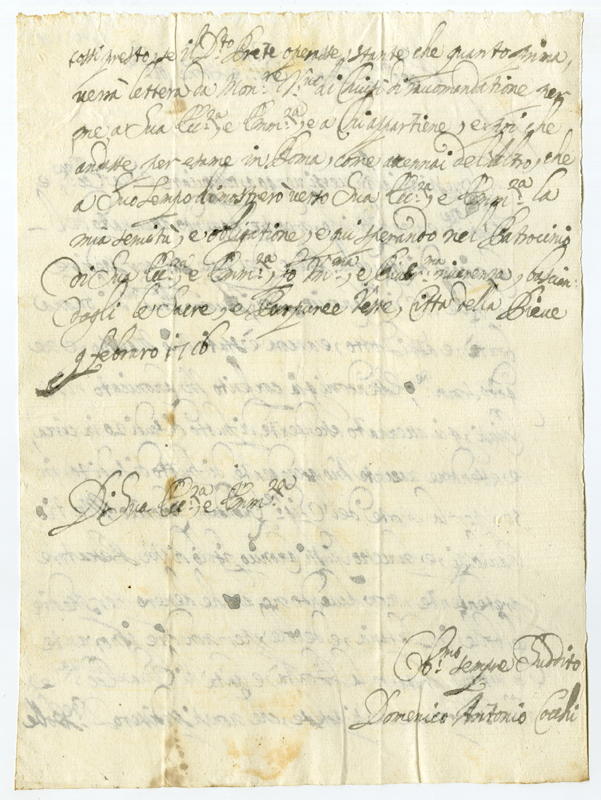 presto, se il D.to Prete operasse, stante che quanto prima,
verrà lettera da Mon.re Ill.mo di Chiusi di racomandatione per
me a Sua Ecc.za, e Emm.za, e a Chi appartiene, e che
andasse per esame in Roma, come acennai del altro, che
a Suo tempo dimostrerò verso Sua Ecc.za, e Emm.za la
mia servitù, e obligatione, e qui sperando nel Patrocinio
di Sua Ecc.za, e Emm.za, fo riverenza, bacian-
dogli le Sacre, e Purpuree Veste, Città della Pieve
9 febraro 1716
Di Sua Ecc.za, e Emm.za
sempre Suddito
Domenico Antonio Cocchi